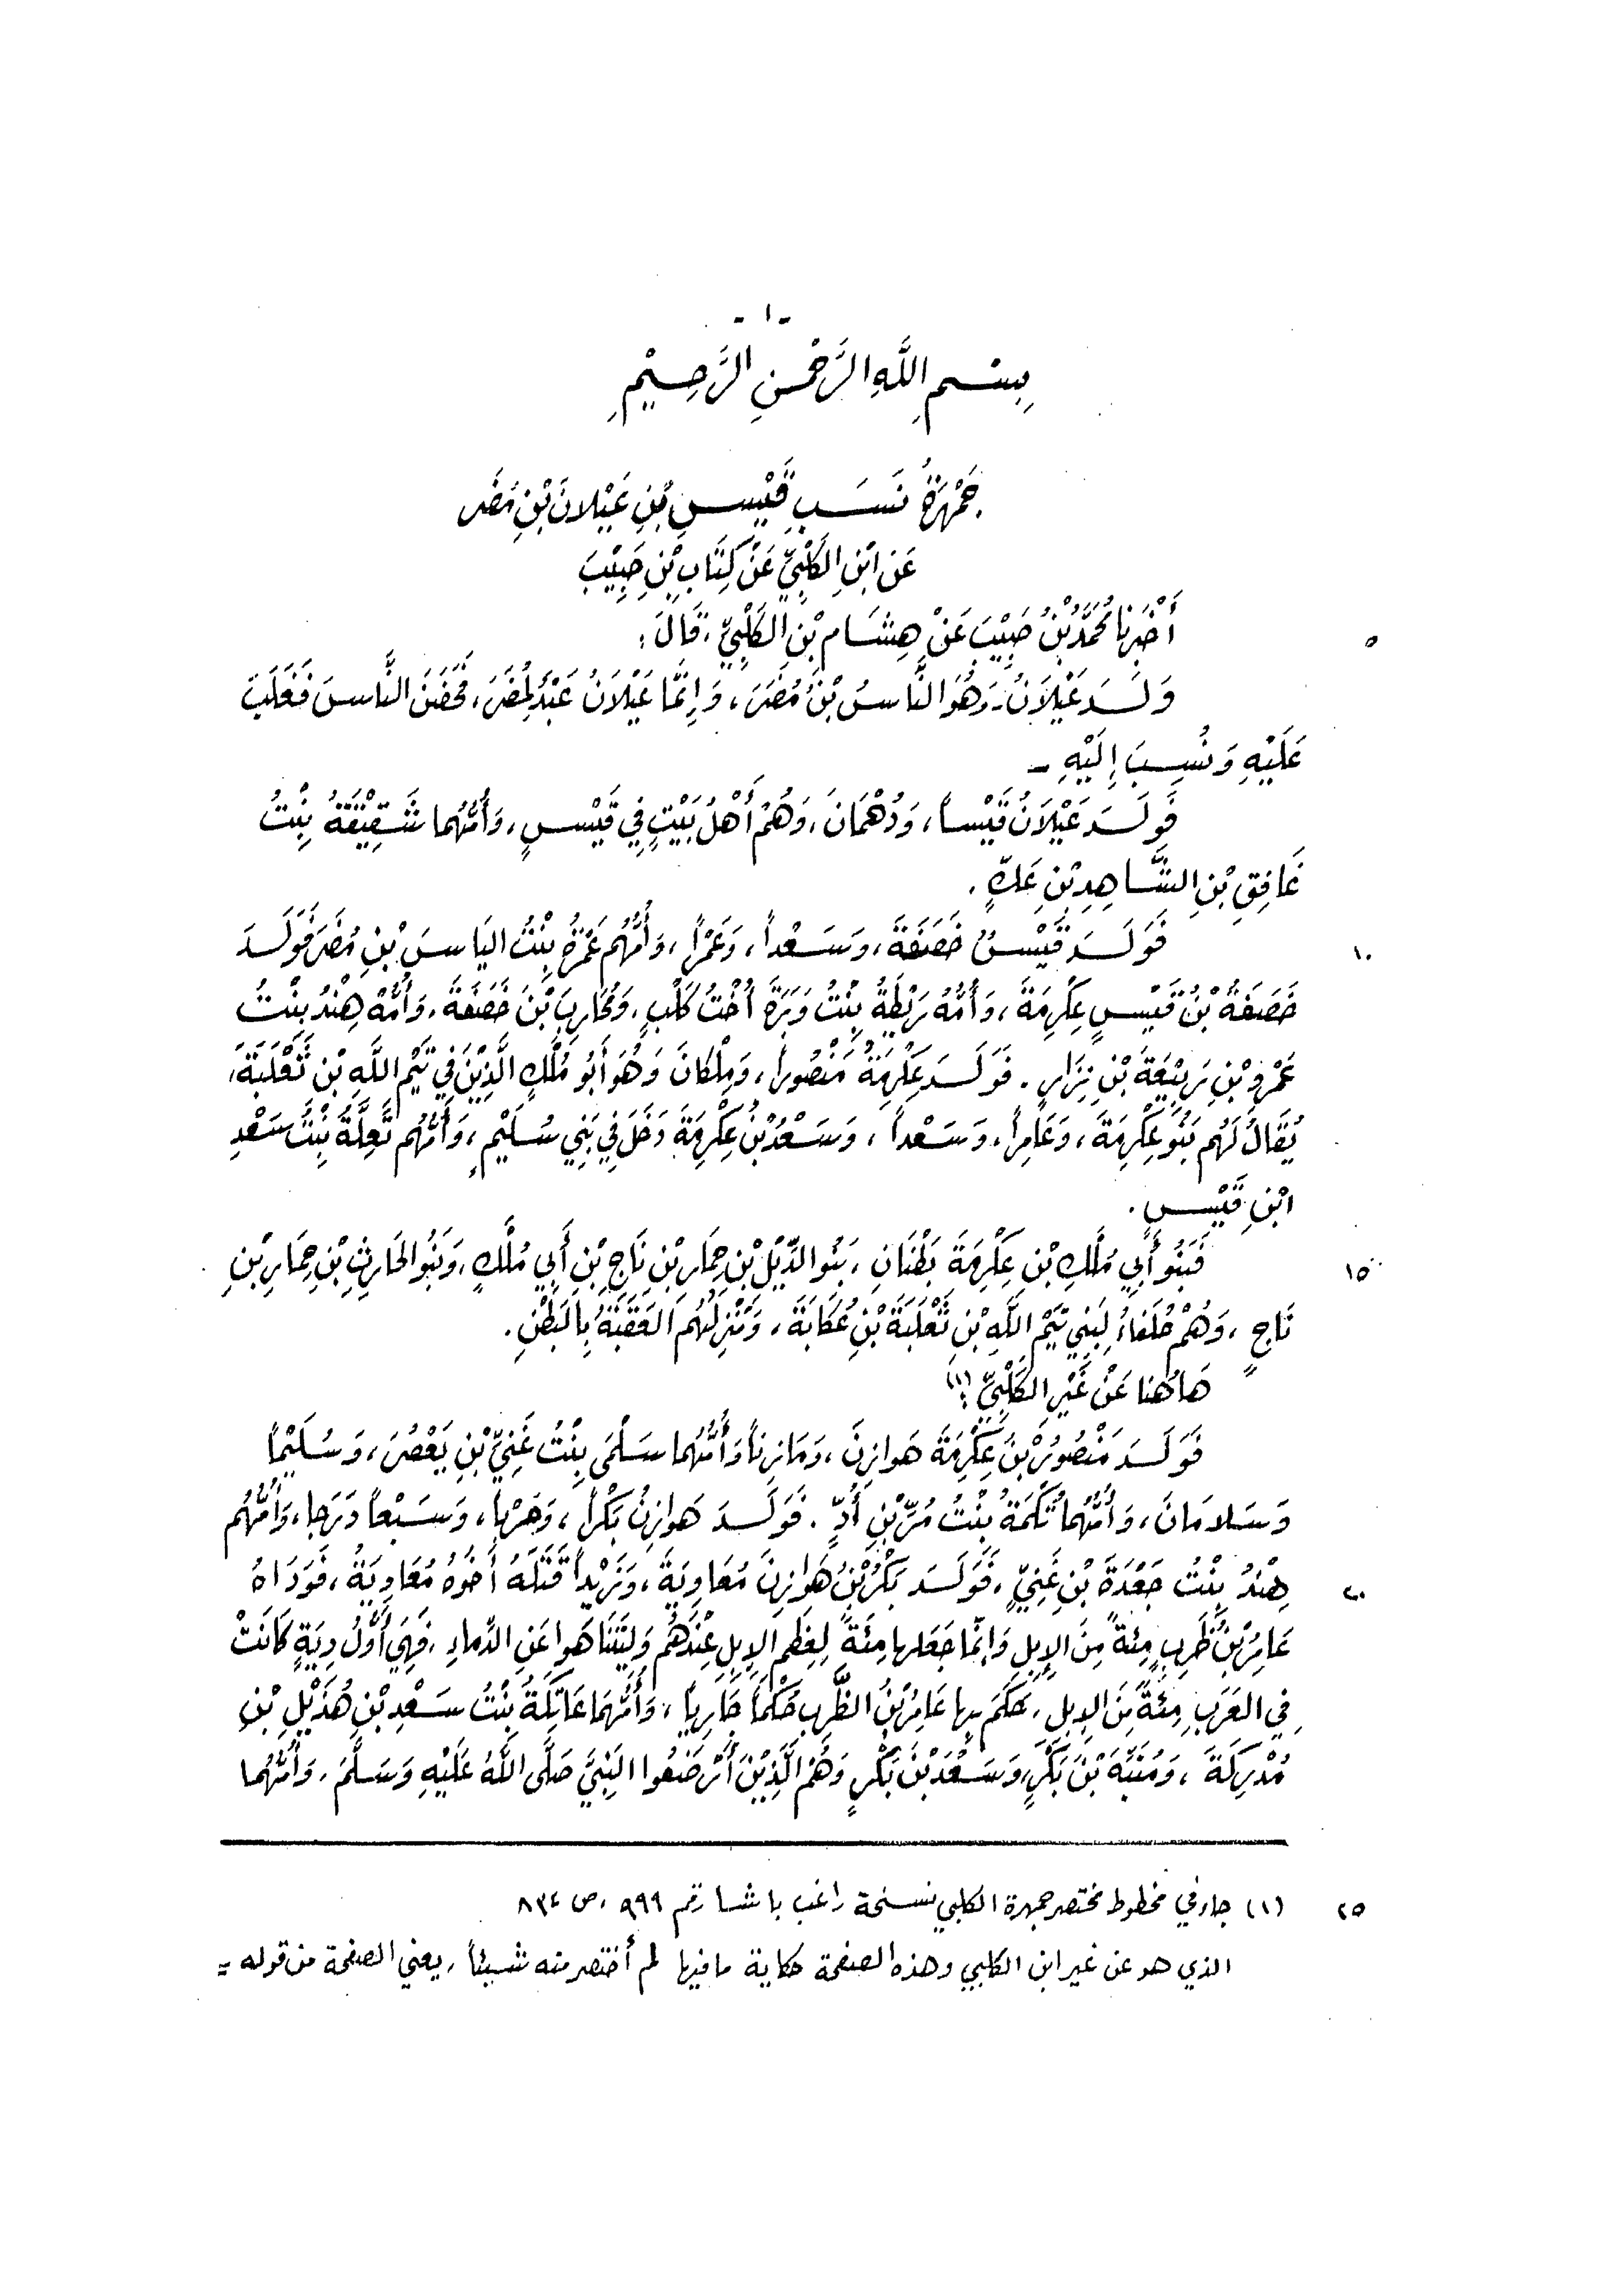 - ١ -
بِسْمِ اللَّهِ الرَّحْمنِ الرَّحِيْمِ
جَمْهَرَةُ نَسَبِ قَيْسِ بْنِ عَيْلانَ بْنِ مُضَر
عَن ابْنِ الكَلْبِيِّ عَنْ كِتَابِ بْنِ حَبِيْبَ
أَخْبَرنا مُحَمَّدُ بْنُ حَبِيْبَ عَنْ هِشَام بْنِ الكَلْبِيِّ، قَالَ: ٥
وَلَدَ عَيْلَانُ - وَهُوَ النَّاسُ بْنُ مُضَرَ، وَإِنَّمَا عَيْلَانُ عَبْدٌ لِمُضَرَ، فَحَضَنَ النَّاسَ فَغَلَبَ
عَلَيْهِ وَنُسِبَ إِلَيْهِ -
فَوَلَدَ عَيْلَانُ قَيْساً، وَدُهْمَانَ، وَهُمْ أَهْلُ بَيْتٍ فِي قَيْسٍ، وَأُمُّهُما شَقِيْقَةُ بِنْتُ
غَافِقِ بْنِ الشَّاهِدِ بْنِ عَكٍّ.
فَوَلَدَ قَيْسُ خَصَفَةَ، وَسَعْداً، وَعَمْراً، وَأُمُّهُم عَمْرَةُ بِنْتُ اليَاسَ بْنِ مُضَرَ فَوَلَدَ ١٠
خَصَفَةُ بْنُ قَيْسٍ عِكْرِمَةَ، وَأُمُّهُ رَيْطَةُ بِنْتُ وَبَرَةَ أُخْتُ كَلْبٍ، وَمُحَارِبَ بْنَ خَصَفَةَ، وَأُمُّهُ هِنْدُ بِنْتُ
عَمْرِو بْنِ رَبِيْعَةَ بْنِ نِزَارٍ. فَوَلَدَ عِكْرِمَةُ مَنْصُوراً، وَمِلْكَانَ وَهُوَ أَبُو مُلْكٍ الَّذِيْنَ فِي تَيْمِ اللَّهِ بْنِ ثَعْلَبَةَ،
يُقَالُ لَهُم بَنُو عِكْرِمَةَ، وَعَامِراً، وَسَعْداً، وَسَعْدُ بْنُ عِكْرِمَةَ دَخَلَ فِي بَنِي سُلَيْمٍ، وَأُمُّهُم تَعِلَّةُ بِنْتُ سَعْدِ
ابْنِ قَيْسٍ.
فَبَنُو أَبِي مُلْكِ بْنِ عِكْرِمَةَ بَطْنَانِ، بَنُو الدِّيْلِ بْنِ حِمَارِ بْنِ نَاجِ بْنِ أَبِي مُلْكٍ، وَبَنُو الحَارِثِ بْنِ حِمَارِ بْنِ ١٥
نَاجٍ، وَهُمْ حُلَفَاءُ لِبَنِي تَيْمِ اللَّهِ بْنِ ثَعْلَبَةَ بْنِ عُكَابَةَ، وَمَنْزِلُهُم العَقَبَةُ بِالبَطْنِ.
هَا هُنا عَنْ غَيْرِ الكَلْبِيِّ؛(١)
فَوَلَدَ مَنْصُورُ بْنُ عِكْرِمَةَ هَوازِنَ، وَمَازِناً وَأُمُّهُما سَلْمَى بِنْتُ غَنِيِّ بْنِ يَعْصُرَ، وَسُلَيْماً
وَسَلامَانَ، وَأُمُّهُما تُكْمَةُ بِنْتُ مُرِّ بْنِ أُدٍّ. فَوَلَدَ هَوازِنُ بَكْراً، وَحَرْباً، وَسَبْعاً دَرَجا، وَأُمُّهُم
هِنْدُ بِنْتُ جَعْدَةَ بْنِ غَنِيٍّ، فَوَلَدَ بَكْرُ بْنُ هَوازِنَ مُعَاوِيَةَ، وَزَيْداً قَتَلَهُ أَخُوهُ مُعَاوِيَةُ، فَوَدَاهُ ٢٠
عَامِرُ بْنُ ظَرِبٍ مِئَةً مِنَ الإِبِلِ وَإِنَّما جَعَلَها مِئَةً لِعِظَمِ الإِبِلِ عِنْدَهُم وَلِيَتَنَاهَوا عَنِ الدِّماءِ، فَهِيَ أَوَّلُ دِيَةٍ كَانَتْ
فِي العَرَبِ مِئَةً مِنَ الإِبِلِ، حَكَمَ بِها عَامِرُ بْنُ الظَّرِبِ حُكْماً جَارِياً، وَأُمُّهُمَا عَاتِكَةُ بِنْتُ سَعْدِ بْنِ هُذَيْلِ بْنِ
مُدْرِكَةَ، وَمُنَبِّهَ بْنَ بَكْرٍ، وَسَعْدَ بْنَ بَكْرٍ وَهُمُ الَّذِيْنَ أَرْضَعُوا النَّبِيَّ صَلَّى اللَّهُ عَلَيْهِ وَسَلَّمَ، وَأُمُّهُما
(١) جاء في مخطوط مختصر جمهرة الكلبي نسخة راغب باشا رقم ٩٩٩، ص ٨٣٤ ٢٥
الذي هو عن غير ابن الكلبي وهذه الصفحة حكاية ما فيها لم أختصر منه شيئاً، يعني الصفحة من قوله =